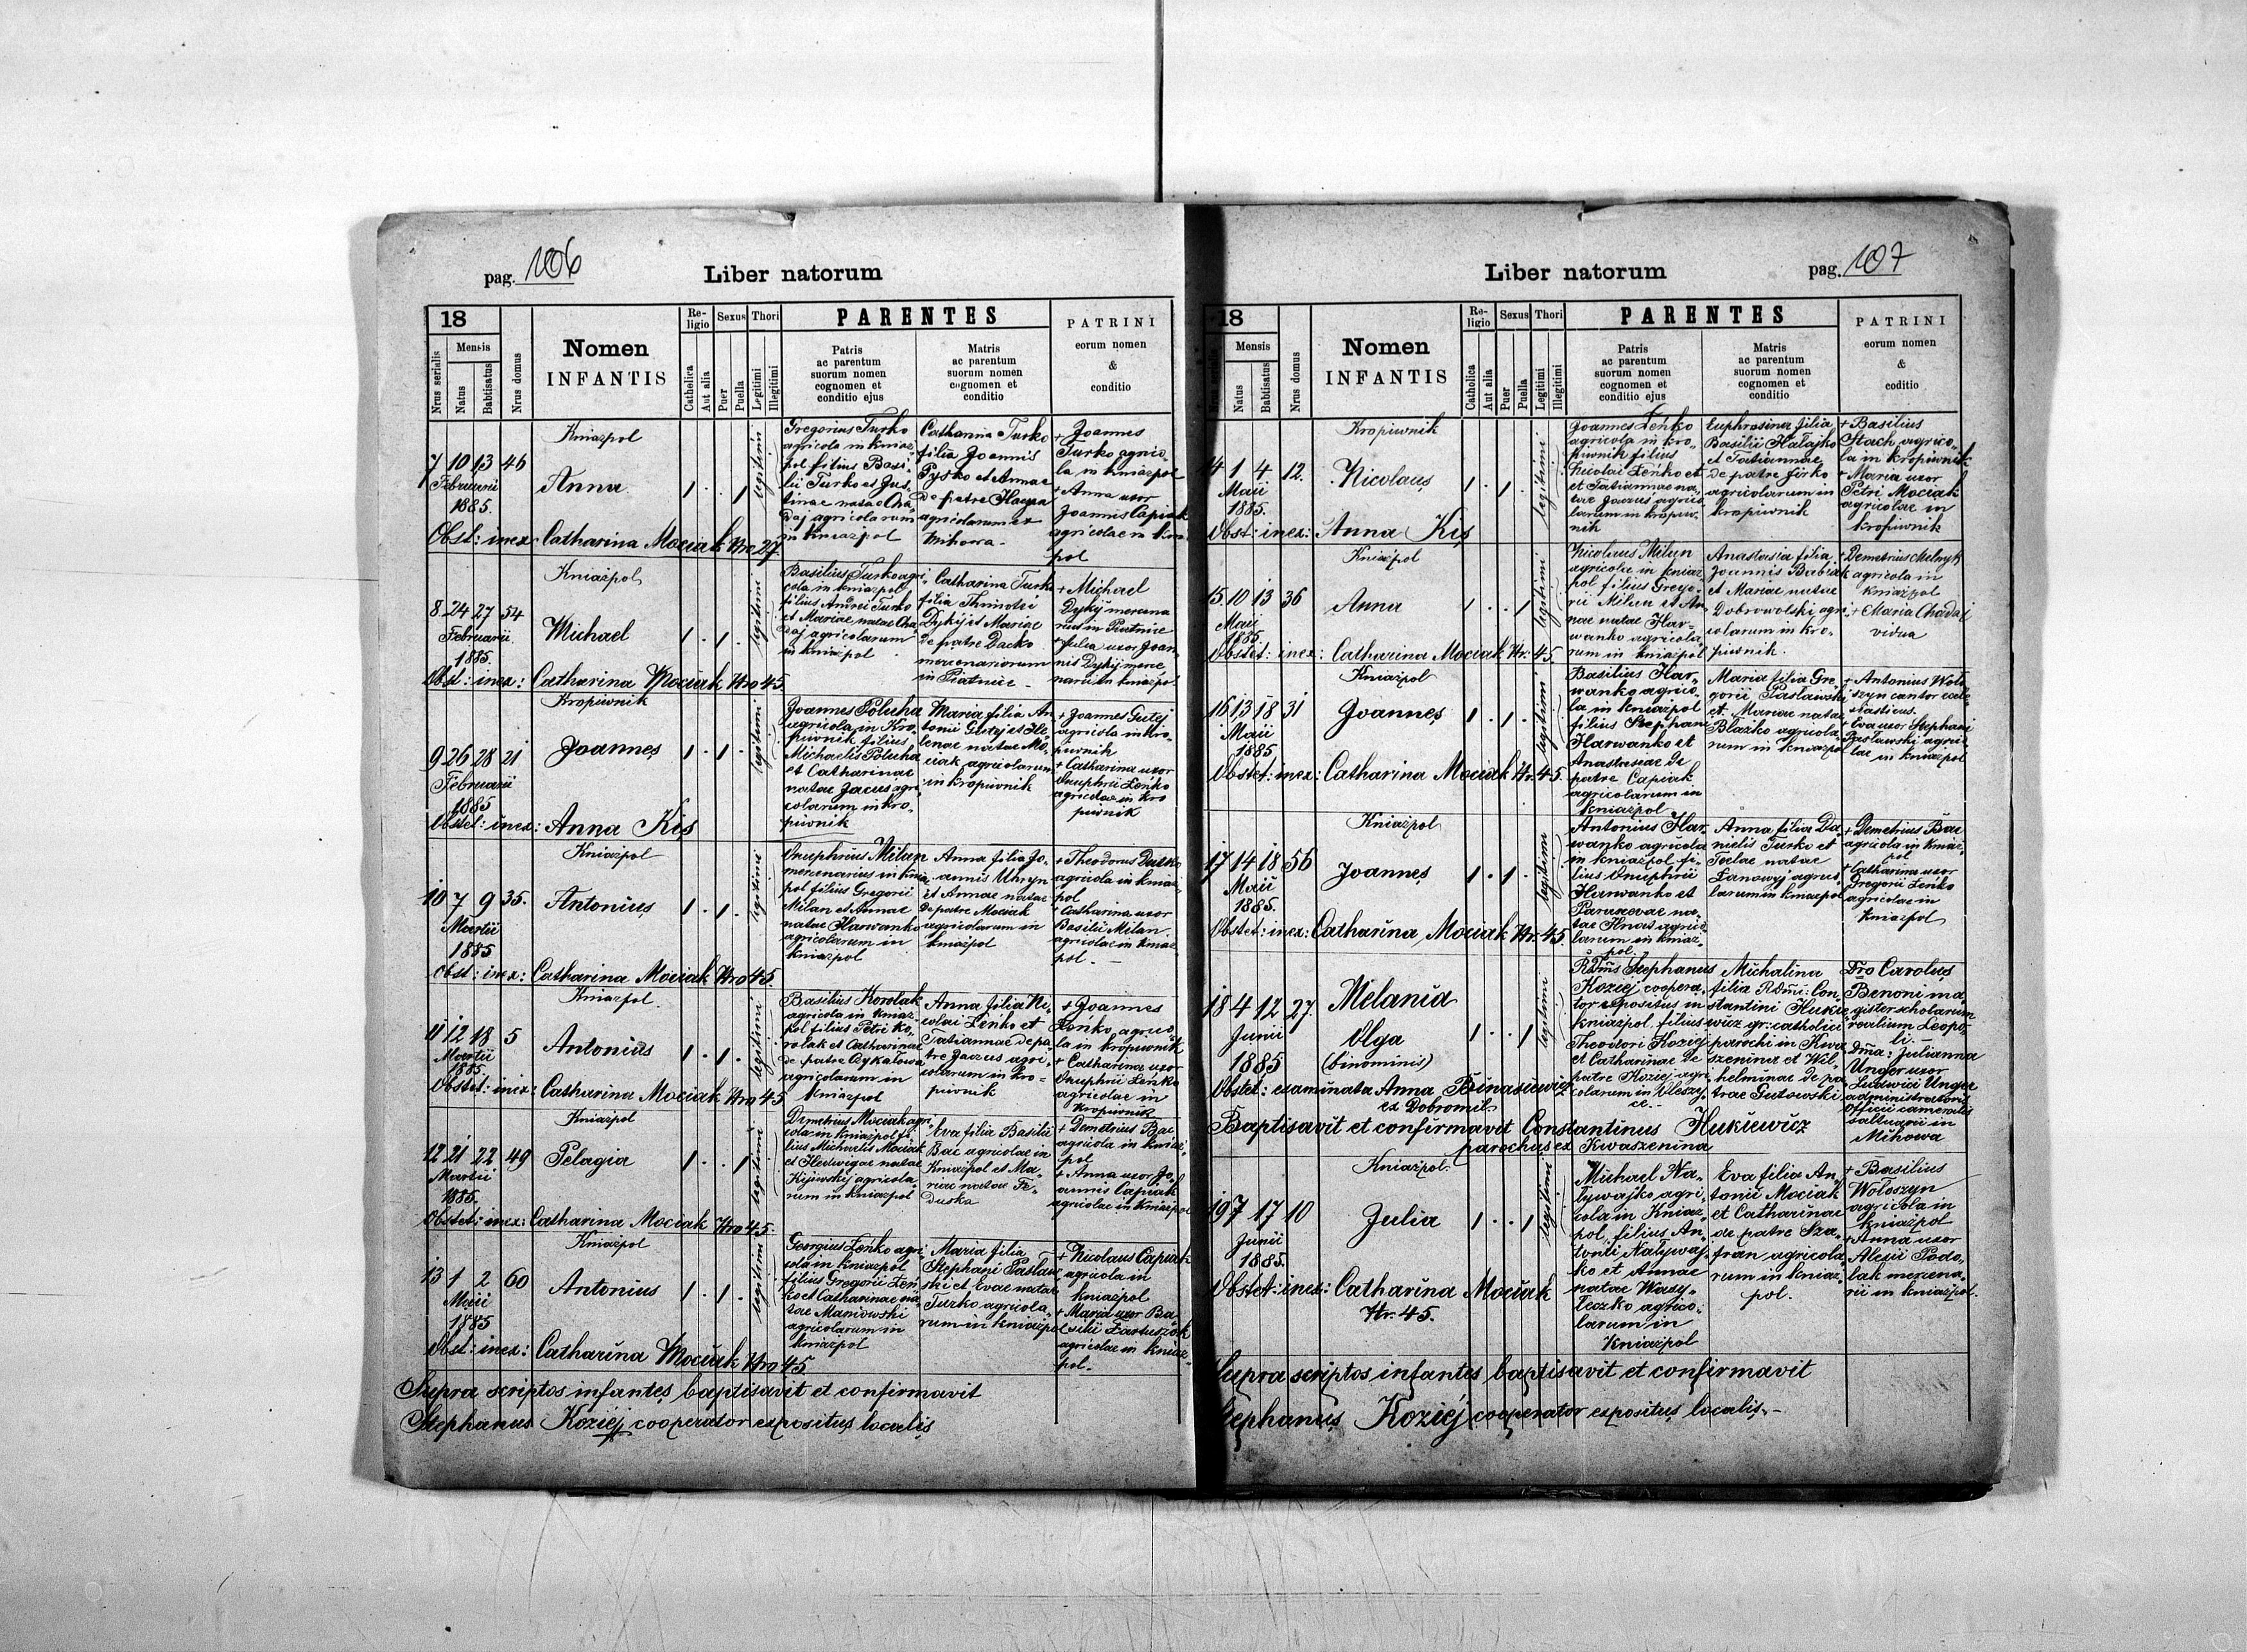 pag. 106
Liber natorum
18
Mensis
Nrus serialis
Natus
Babtisatus
Nrus domus
Nomen
INFANTIS
Re-
ligio
Catholica
Aut alia
Sexus
Puer
Puella
Thori
Legitimi
Illegitimi
PARENTES
Patris
ac parentum
suorum nomen
cognomen et
conditio ejus
Matris
ac parentum
suorum nomen
cognomen et
conditio
PATRINI
eorum nomen
&
conditio
Kniazpol
7 10 13 46
Februarii
1885.
Anna
1 . . 1
legitimi
Gregorius Turko
agricola in kniaz-
pol filius Basi-
lii Turko et Jus-
tinae natae Cha-
daj agricolarum
in kniazpol
Catharina Turko
filia Joannis
Pyrko et Annae
de patre
agricolarum ex
Mihowa -
+ Joannes
Turko agrico-
la in kniazpol
+ Anna uxor
Joannis Capiak
agricolae in knia
pol
Obst: inex: Catharina Mociak Nro 27.
Kniażpol
8 24 27 54
Februarii
1885.
Michael
1 . 1 .
legitimi
Basilius Turko agri-
cola in kniazpol
filius Andrei Turko
et Mariae natae Cha-
daj agricolarum
in kniazpol
Catharina Turko
filia Thimothei
Dykyj et Mariae
de patre Dacko
mercenariorum
in Piatnice -
+ Michael
Dykyj mercena
rius in Piatnice
+ Julia uxor Joan-
nis Dykyj merce
narii in kniazpol
Obst: inex: Catharina Mociak Nro 45.
Kropiwnik
9 26 28 21
Februarii
1885
Joannes
1 . 1 .
legitimi
Joannes Polucha
agricola in Kro-
piwnik filius
Michaelis Polucha
et Catharinae
natae Jacus agri
colarum in kro-
piwnik
Maria filia An-
tonii Gutej et He-
lenae natae Mo-
ciak agricolarum
in kropiwnik
+ Joannes Gutej
agricola in kro-
piwnik
+ Catharina uxor
Onuphrii Leńko
agricolae in kro
piwnik
Obstet: inex: Anna Kis
Kniazpol
10 7 9 35.
Martii
1885
Antonius
1 . 1 .
legitimi
Onuphrius Milan
mercenarius in knia
pol filius Gregorii
Milan et Annae
natae Harwanko
agricolarum in
kniazpol
Anna filia Jo-
annis Uhryn
et Annae natae
de patre Mociak
agricolarum in
kniażpol
+ Theodorus Dacko
agricola in kniaz
pol
+ Catharina uxor
Basilii Milan
agricolae in kniaz
pol. -
Obst: inex: Catharina Mociak Nro 45.
Kniazpol.
11 12 18 5
Martii
1885.
Antonius
1 . 1 .
legitimi
Basilius Korolak
agricola in kniaz-
pol filius Petri Ko-
rolak et Catharinae
de patre
agricolarum in
Kniazpol
Anna filia Ni-
colai Leńko et
Tatiannae de pa-
tre Jacus agri-
colarum in kro-
piwnik
+ Joannes
Leńko agrico-
la in kropiwnik
+ Catharina uxor
Onuphrii Leńko
agricolae in
Kropiwnik
Obstet: inex: Catharina Mociak Nro 45
Kniazpol
12 21 22 49
Martii
1885.
Pelagia
1 . . 1
legitimi
Demetrius Mociak agri-
cola in kniazpol fi-
lius Michaelis Mociak
et Hedwigae natae
Kijowskij agricola-
rum in kniazpol
Eva filia Basilii
Bac agricolae in
Kniazpol et Ma-
riae natae Fe-
duska
+ Demetrius Bac
agricola in kniaz-
pol
+ Anna uxor Jo-
annis Capiak
agricolae in kniazpol
Obstet: inex: Catharina Mociak Nro 45.
Kniażpol
13 1 2 60
Maii
1885
Antonius
1 . 1 .
legitimi
Georgius Leńko agri-
cola in kniazpol
filius Gregorii Leń-
ko et Catharinae na-
tae Maniowski
agricolarum in
kniazpol
Maria filia
Stephani Pasław-
ski et Evae natae
Turko agricola-
rum in kniazpol
+ Nicolaus Capiak
agricola in
kniazpol
+ Maria uxor Ba-
silii Bartuszak
agricolae in kniaz-
pol -
Obst: inex: Catharina Mociak Nro 45.
Supra scriptos infantes baptisavit et confirmavit
Stephanus Koziej cooperator expositus localis
Liber natorum
pag. 107
18
Mensis
Natus
Babtisatus
Nrus domus
Nomen
INFANTIS
Re-
ligio
Catholica
Aut alia
Sexus
Puer
Puella
Thori
Legitimi
Illegitimi
PARENTES
Patris
ac parentum
suorum nomen
cognomen et
conditio ejus
Matris
ac parentum
suorum nomen
cognomen et
conditio
PATRINI
eorum nomen
&
coditio
Kropiwnik
14 1 4 12.
Maii
1885.
Nicolaus
1 . 1 .
legitimi
Joannes Leńko
agricola in kro-
piwnik filius
Nicolai Leńko et
et Tatiannae na-
tae Jacus agrico
larum in kropiw-
nik
Euphrosina filia
Basilii Hałajko
et Tatiannae
de patre Jirko
agricolarum in
kropiwnik
+ Basilius
Stach agrico-
la in kropiwnik
+ Maria uxor
Petri Mociak
agricolae in
kropiwnik
Obst: inex: Anna Kis
Kniażpol
15 10 13 36
Maii
1885.
Anna
1 . . 1
legitimi
Nicolaus Milan
agricola in kniaz-
pol filius Grego-
rii Milan et An-
nae natae Har-
wanko agricola
rum in kniazpol
Anastasia filia
Joannis Babiak
et Mariae natae
Dobrowolski agri-
colarum in kro-
piwnik.
+ Demetrius Melnyk
agricola in
kniazpol
+ Maria Chadaj
vidua
Obstet: inex: Catharina Mociak Nr. 45.
Kniazpol
16 13 18 31
Maii
1885
Joannes
1 . 1 .
legitimi
Basilius Har-
wanko agrico-
la in kniazpol
filius Stephani
Harwanko et
Anastasiae de
patre Capiak
agricolarum in
kniazpol
Maria filia Gre
gorii Pasławski
et Mariae natae
Blazko agricola-
rum in kniazpol
+ Antonius Woło
szyn cantor eccle-
siasticus.
+ Eva uxor Stephani
Pasławski agrico-
lae in kniazpol
Obstet: inex: Catharina Mociak Nr. 45.
Kniażpol
17 14 18 56
Maii
1885.
Joannes
1 . 1 .
legitimi
Antonius Har-
wanko agricola
in kniazpol fi-
lius Onuphrii
Harwanko et
Paraxevae na-
tae Hnat agrico
larum in kniaz-
pol.
Anna filia Da-
nielis Turko et
Teclae natae
Łanowyj agrico
larum in kniazpol
+ Demetrius Bac
agricola in kniaz-
pol
+ Catharina uxor
Gregorii Leńko
agricolae in
kniazpol
Obstet: inex: Catharina Mociak Nr. 45
18 4 12 27.
Junii
1885
Melania
Olga
(binominis)
1 . . 1
legitimi
Rdms Stephanus
Koziej coopera-
tor expositus in
kniazpol. filius
Theodori Koziej
et Catharinae de
patre Koziej agri
colarum in
Michalina
filia Rdmi: Con-
stantini Hukie
wicz gr: catholici
parochi in Kwa
szenina et Wil-
helminae de pa
trae Gutowski.
Dro Carolus
Benoni ma-
gister scholarum
realium Leopo-
li. -
Dma: Julianna
Unger uxor
Ludwici Unger
administratoris
officii cameralis
saltuarii in
Mihowa
Obstet: examinata Anna Binasiewicz
ex Dobromil
Baptisavit et confirmavit Constantinus Hukiewicz
parochus ex Kwaszenina
Kniażpol.
19 7 17 10
Junii
1885.
Julia
1 . . 1
legitimi
Michael Na-
tywajko agri-
cola in Kniaz-
pol, filius An-
tonii Natywaj-
ko et Annae
natae Wasy-
leczko agrico-
larum in
Kniazpol
Eva filia An-
tonii Mociak
et Catharinae
de patre Sza-
fran agricola-
rum in kniaz-
pol.
+ Basilius
Wołoszyn
agricola in
kniazpol
+ Anna uxor
Alexii Podo-
lak mercena-
rii in kniazpol.
Obstet: inex: Catharina Mociak
Nr. 45.
Supra scriptos infantes baptisavit et confirmavit
Stephanus Koziej cooperator expositus localis. -